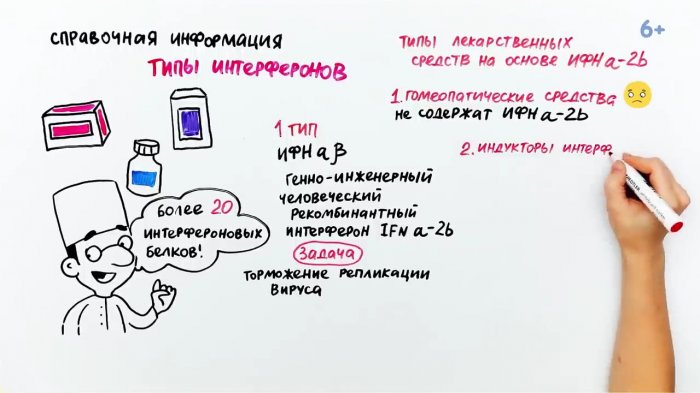 СПРАВОЧНАЯ ИНФОРМАЦИЯ
ТИПЫ ИНТЕРФЕРОНОВ
БОЛЕЕ 20
ИНТЕРФЕРОНОВЫХ
БЕЛКОВ!
1 ТИП
ИФН α β
ГЕННО-ИНЖЕНЕРНЫЙ
ЧЕЛОВЕЧЕСКИЙ
РЕКОМБИНАНТНЫЙ
ИНТЕРФЕРОН IFN α-2b
ЗАДАЧА
ТОРМОЖЕНИЕ РЕПЛИКАЦИИ
ВИРУСА
6+
ТИПЫ ЛЕКАРСТВЕННЫХ
СРЕДСТВ НА ОСНОВЕ ИФН α-2b
1. ГОМЕОПАТИЧЕСКИЕ СРЕДСТВА
НЕ СОДЕРЖАТ ИФН α-2b
2. ИНДУКТОРЫ ИНТЕРФ